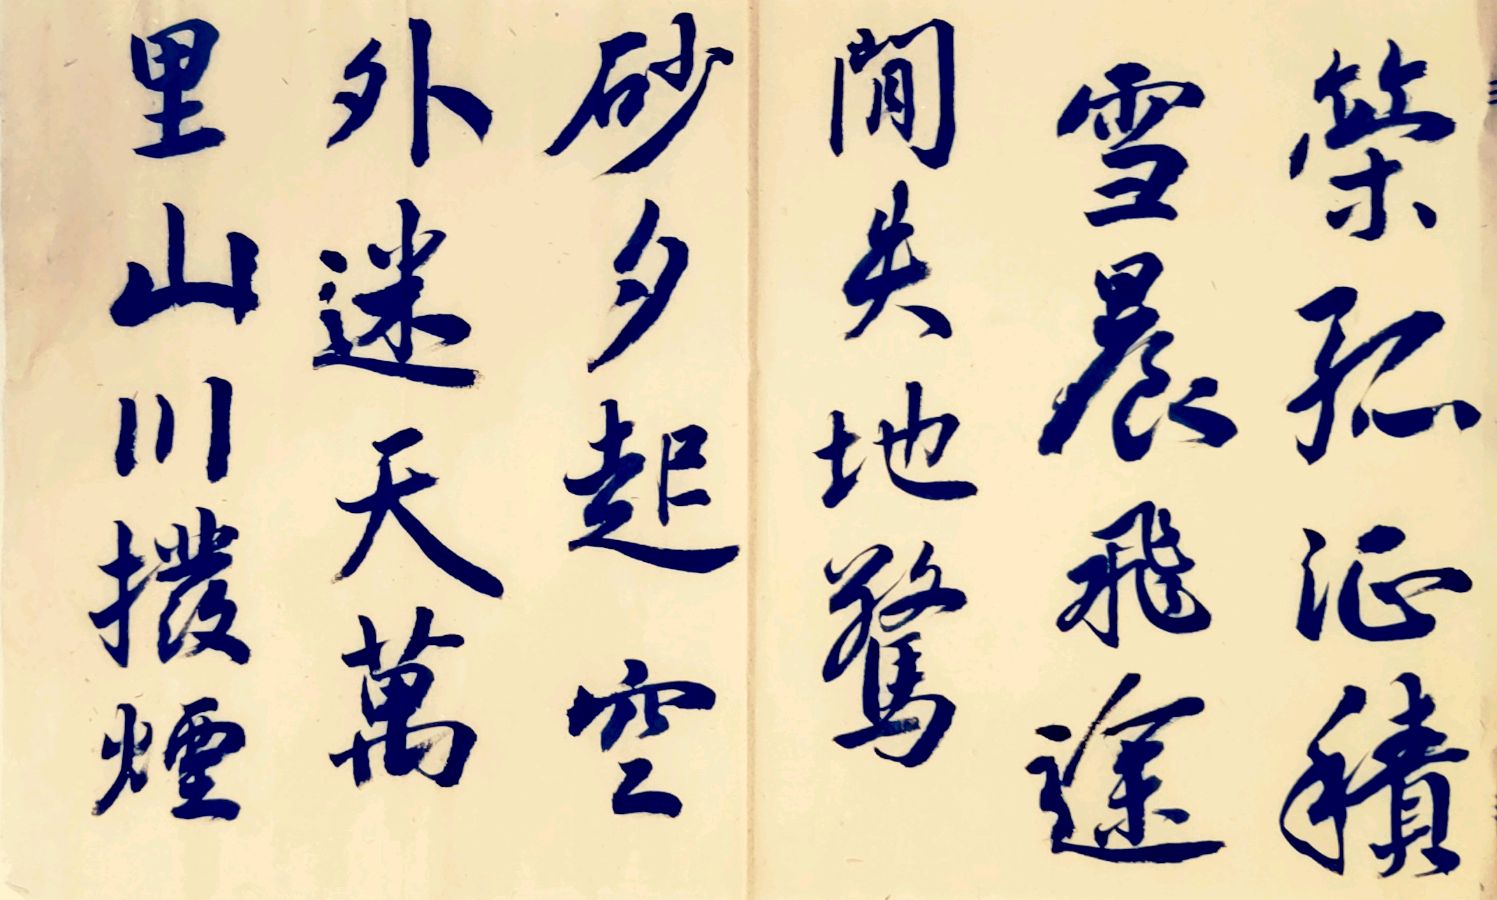 策孤征積
雪晨飛途
閒失地驚
砂夕起空
外迷天萬
里山川撥煙